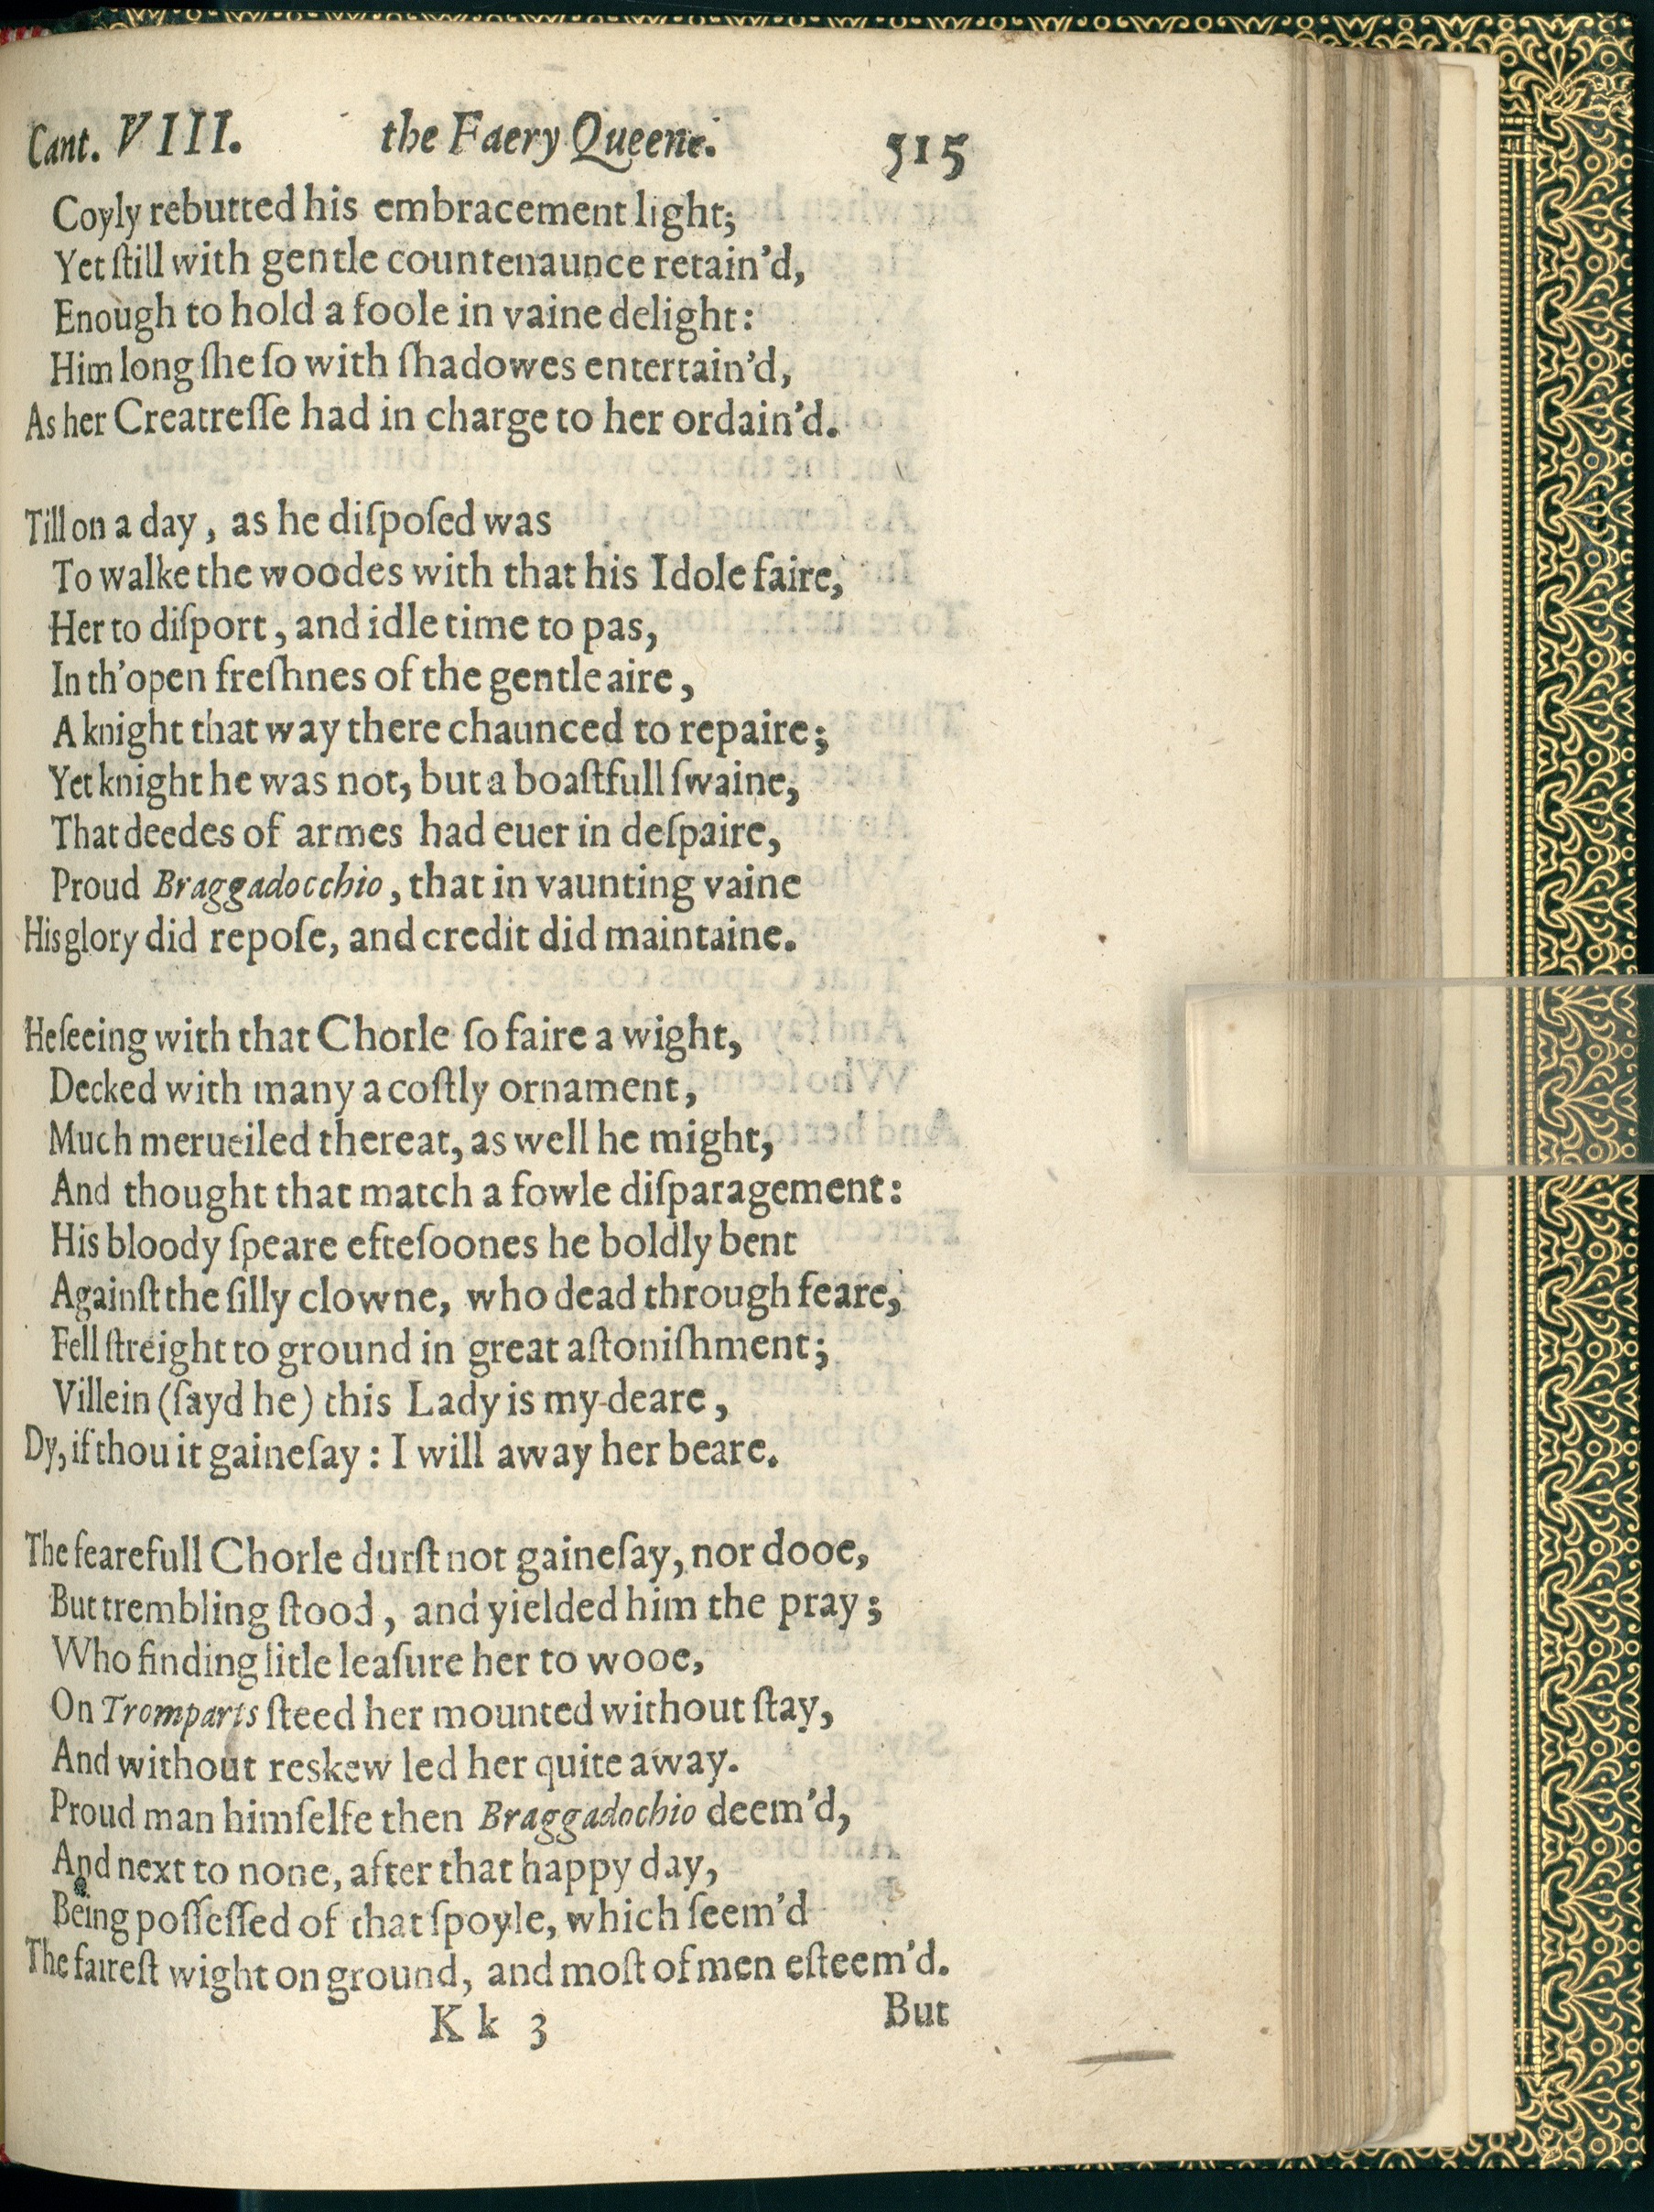 Cant. VIII. the Faery Queene. 515
Coyly rebutted his embracement light;
Yet ſtill with gentle countenaunce retain'd,
Enough to hold a foole in vaine delight:
Him long ſhe ſo with ſhadowes entertain'd,
As her Creatreſſe had in charge to her ordain'd.
Till on a day, as he diſpoſed was
To walke the woodes with that his Idole faire,
Her to diſport, and idle time to pas,
In th'open freſhnes of the gentle aire,
A knight that way there chaunced to repaire;
Yet knight he was not, but a boaſtfull ſwaine,
That deedes of armes had euer in deſpaire,
Proud Braggadocchio, that in vaunting vaine
His glory did repoſe, and credit did maintaine.
He ſeeing with that Chorle ſo faire a wight,
Decked with many a coſtly ornament,
Much merueiled thereat, as well he might,
And thought that match a fowle diſparagement:
His bloody ſpeare efteſoones he boldly bent
Againſt the ſilly clowne, who dead through feare,
Fell ſtreight to ground in great aſtoniſhment;
Villein (ſayd he) this Lady is my deare,
Dy, if thou it gaineſay: I will away her beare.
The fearefull Chorle durſt not gaineſay, nor dooe,
But trembling ſtood, and yielded him the pray;
Who finding litle leaſure her to wooe,
On Tromparts ſteed her mounted without ſtay,
And without reskew led her quite away.
Proud man himſelfe then Braggadochio deem'd,
And next to none, after that happy day,
Being poſſeſſed of that ſpoyle, which ſeem'd
The faireſt wight on ground, and moſt of men eſteem'd.
K k 3 But